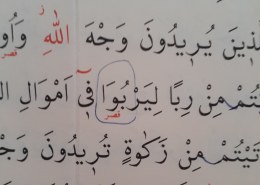 لَّذِينَ يُرِيدُونَ وَجْهَ اللّٰهِ وَاُو
قصر
تُمْ مِنْ رِبًا لِيَرْبُوَا فِٓى اَمْوَالِ ال
قصر
تَيْتُمْ مِنْ زَكٰوةٍ تُرِيدُونَ وَجْ